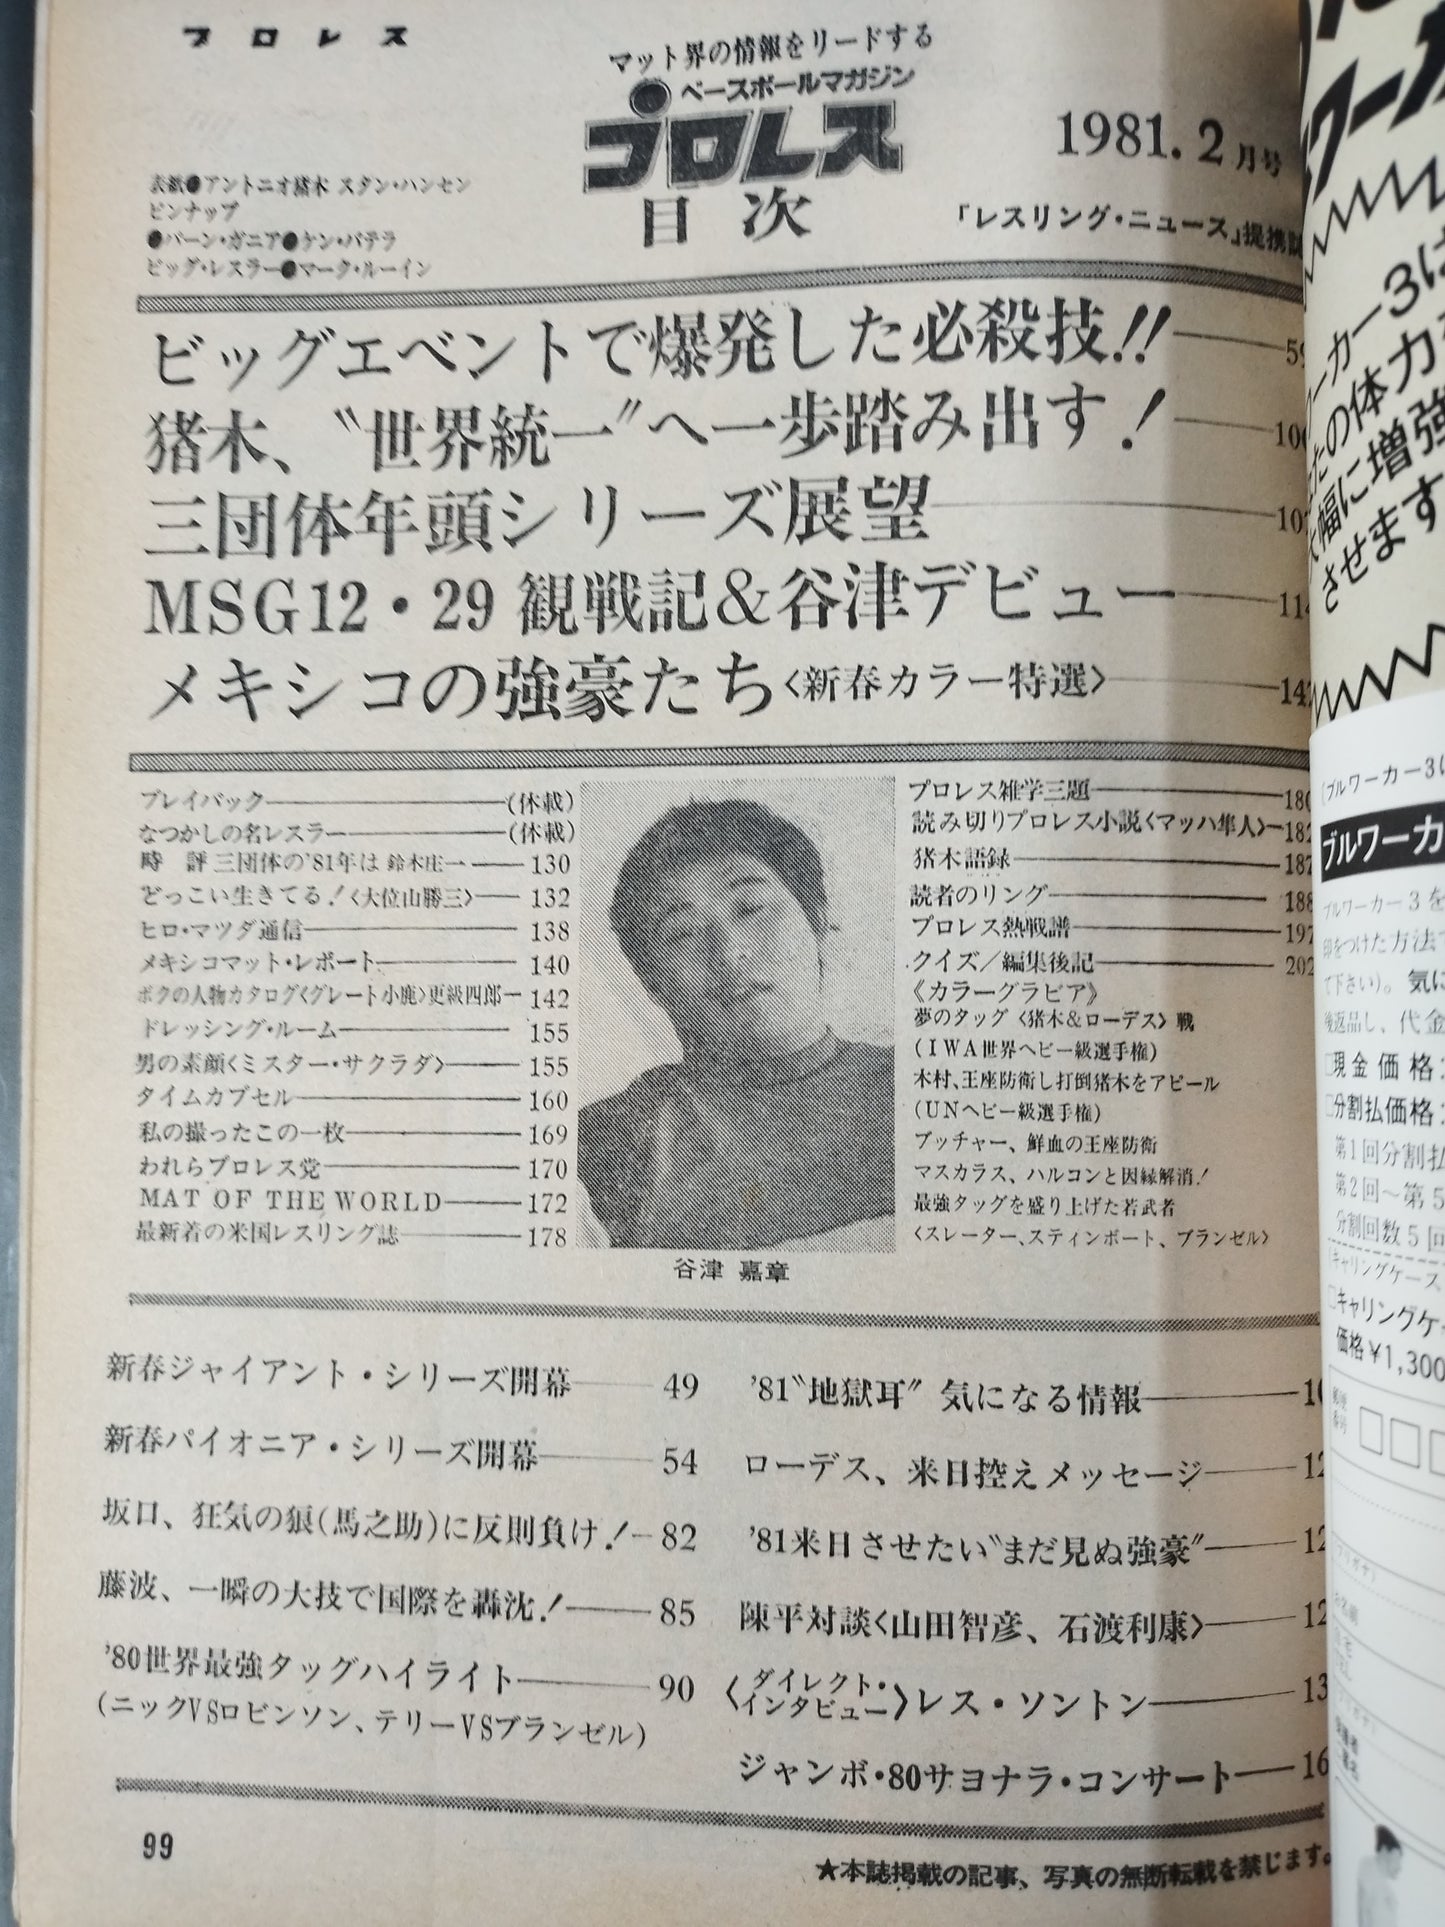 プロレス
マット界の情報をリードする
ベースボールマガジン
プロレス
目次
1981.2月号
「レスリング・ニュース」提携
表紙●アントニオ猪木 スタン・ハンセン
ピンナップ
●バーン・ガニア●ケン・パテラ
ビッグ・レスラー●マーク・ルーイン
ビッグエベントで爆発した必殺技!!
猪木、〝世界統一〟へ一歩踏み出す!
三団体年頭シリーズ展望
MSG12・29 観戦記&谷津デビュー
メキシコの強豪たち〈新春カラー特選〉
プレイバック (休載)
なつかしの名レスラー (休載)
時 評 三団体の'81年は 鈴木庄一 130
どっこい生きてる!〈大位山勝三〉 132
ヒロ・マツダ通信 138
メキシコマット・レポート 140
ボクの人物カタログ〈グレート小鹿〉更級四郎 142
ドレッシング・ルーム 155
男の素顔〈ミスター・サクラダ〉 155
タイムカプセル 160
私の撮ったこの一枚 169
われらプロレス党 170
MAT OF THE WORLD 172
最新着の米国レスリング誌 178
谷津 嘉章
プロレス雑学三題 180
読み切りプロレス小説〈マッハ隼人〉 182
猪木語録 187
読者のリング 188
プロレス熱戦譜 197
クイズ/編集後記 202
《カラーグラビア》
夢のタッグ〈猪木&ローデス〉戦
(IWA世界ヘビー級選手権)
木村、王座防衛し打倒猪木をアピール
(UNヘビー級選手権)
ブッチャー、鮮血の王座防衛
マスカラス、ハルコンと因縁解消!
最強タッグを盛り上げた若武者
〈スレーター、スティンボート、ブランゼル〉
新春ジャイアント・シリーズ開幕 49
新春パイオニア・シリーズ開幕 54
坂口、狂気の狼(馬之助)に反則負け! 82
藤波、一瞬の大技で国際を轟沈! 85
'80世界最強タッグハイライト 90
(ニックVSロビンソン、テリーVSブランゼル)
'81〝地獄耳〟気になる情報
ローデス、来日控えメッセージ
'81来日させたい〝まだ見ぬ強豪〟
陳平対談〈山田智彦、石渡利康〉
〈ダイレクト・インタビュー〉レス・ソントン
ジャンボ・80サヨナラ・コンサート
99
★本誌掲載の記事、写真の無断転載を禁じます。
ーカー3は
の体力
幅に増強
させます
(ブルワーカー3
ブルワーカ
ブルワーカー3を
印をつけた方法
て下さい)。気に
後返品し、代金
□現金価格
□分割払価格
第1回分割払
第2回〜第5
分割回数5回
キャリングケース
□キャリングケ
価格¥1,300